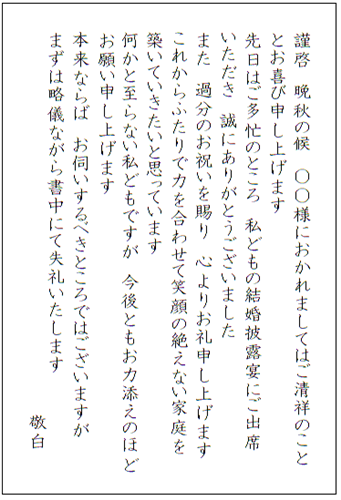 謹啓　晩秋の候　〇〇様におかれましてはご清祥のこと
とお喜び申し上げます
先日はご多忙のところ　私どもの結婚披露宴にご出席
いただき　誠にありがとうございました
また　過分のお祝いを賜り　心よりお礼申し上げます
これからふたりで力を合わせて笑顔の絶えない家庭を
築いていきたいと思っています
何かと至らない私どもですが　今後ともお力添えのほど
お願い申し上げます
本来ならば　お伺いするべきところではございますが
まずは略儀ながら書中にて失礼いたします
敬白